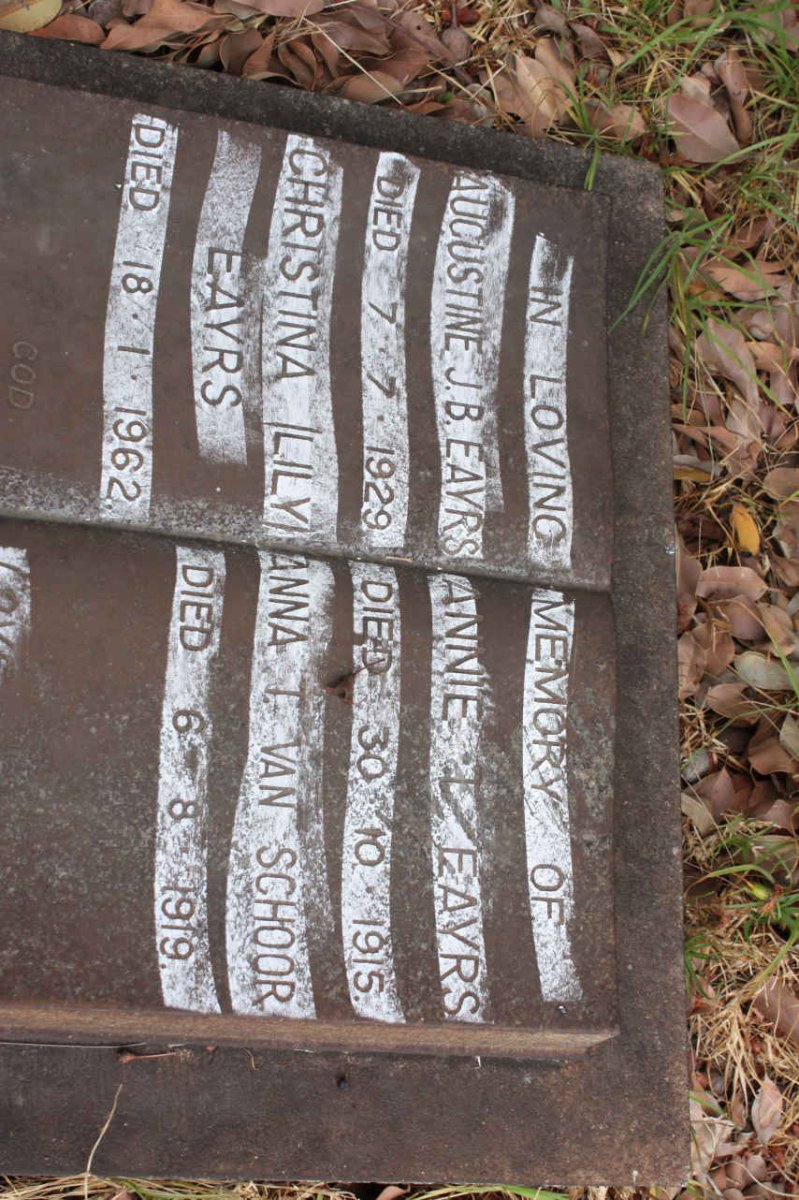 IN LOVING MEMORY OF
AUGUSTINE J.B. EAYRS
DIED 7. 7. 1929
CHRISTINA (LILY)
EAYRS
DIED 18. 1. 1962.
ANNIE EAYRS
DIED 30/10 1915.
ANNA T VAN SCHOOR
DIED 6-8-1919.